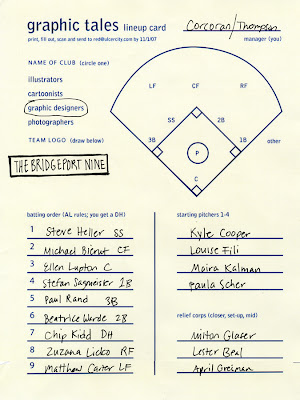 graphic tales lineup card
Corcoran/Thompson
print, fill out, scan and send to red@ulcercity.com by 11/1/07
manager (you)
NAME OF CLUB (circle one)
illustrators
cartoonists
graphic designers
photographers
TEAM LOGO (draw below)
THE BRIDGEPORT NINE
LF
CF
RF
SS
2B
3B
1B
other
P
C
batting order (AL rules; you get a DH)
1 Steve Heller SS
2 Michael Bierut CF
3 Ellen Lupton C
4 Stefan Sagmeister 1B
5 Paul Rand 3B
6 Beatrice Warde 2B
7 Chip Kidd DH
8 Zuzana Licko RF
9 Matthew Carter LF
starting pitchers 1-4
Kyle Cooper
Louise Fili
Maira Kalman
Paula Scher
relief corps (closer, set-up, mid)
Milton Glaser
Lester Beal
April Greiman